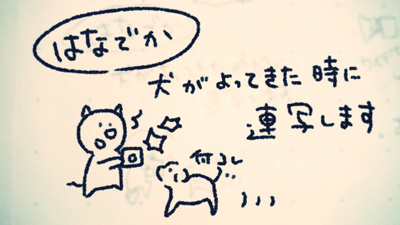 はなでか
犬がよってきた時に
連写します